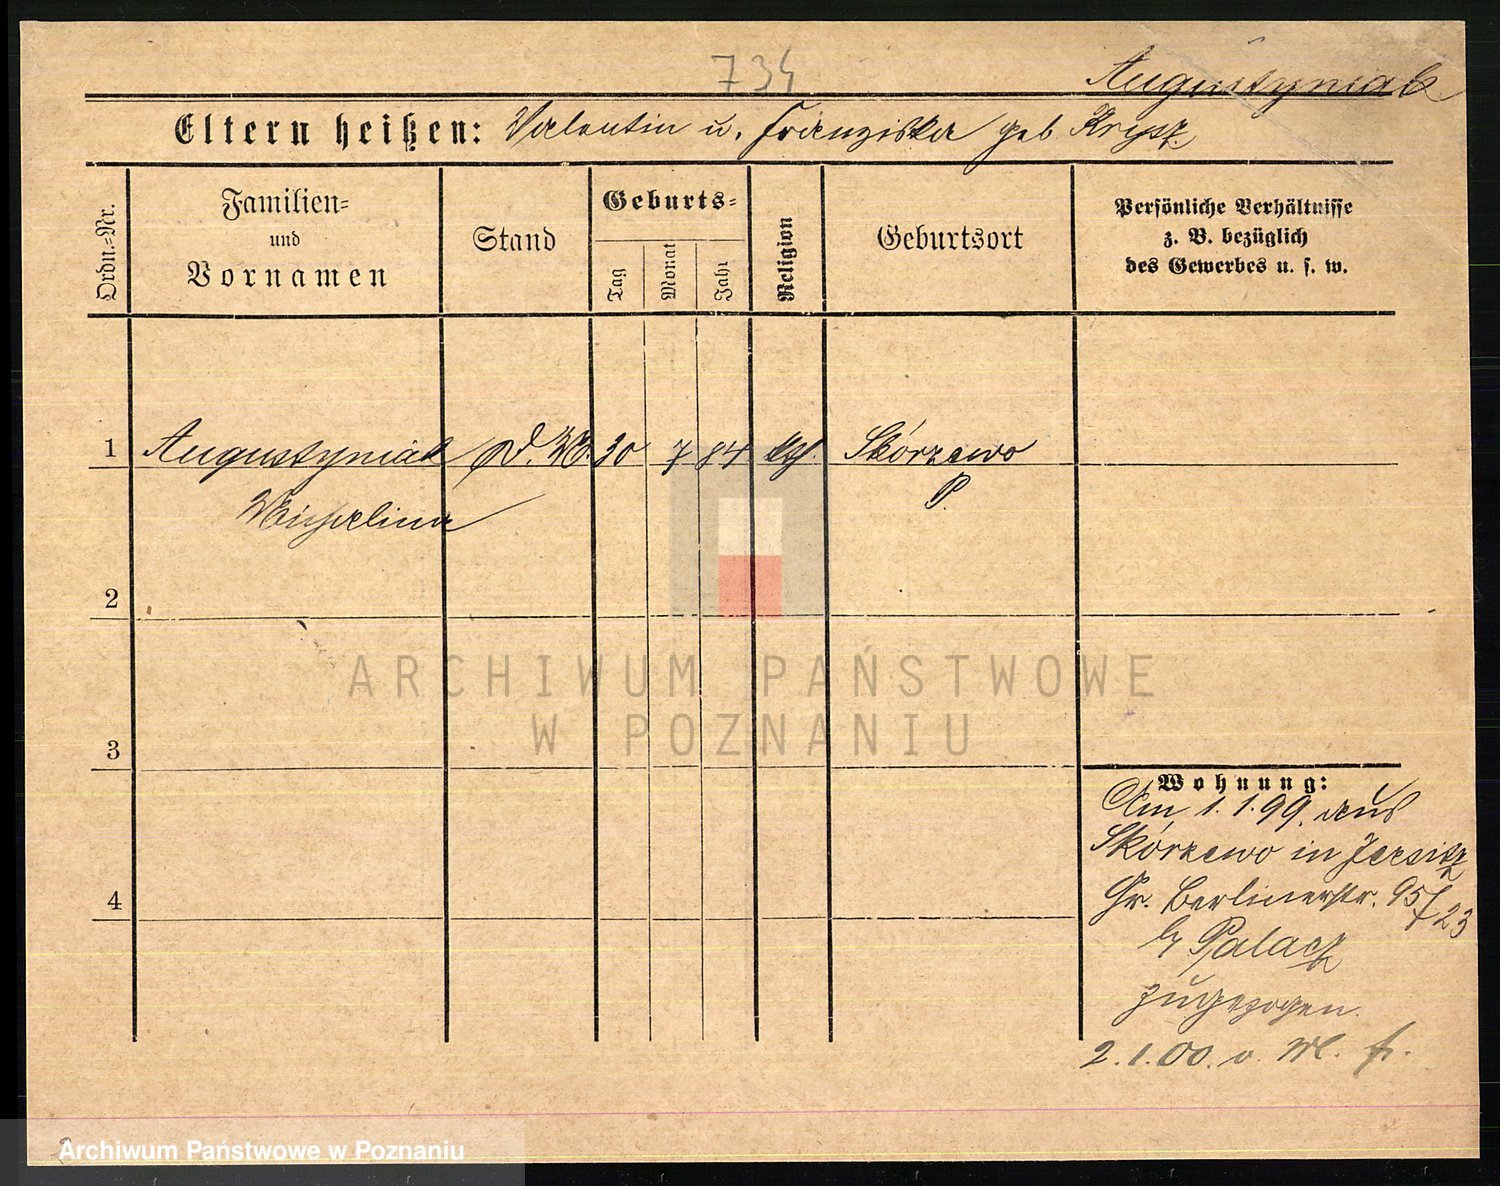 734
Augustyniak
Eltern heißen: Valentin u. Franziska geb. Krysz.
Ordn.-Nr.
Familien-
und
Vornamen
Stand
Geburts-
Tag
Monat
Jahr
Religion
Geburtsort
Persönliche Verhältnisse
z. B. bezüglich
des Gewerbes u. s. w.
1 Augustyniak D. M. 20 7 84 kth. Skórzewo
Michalina P.
2
3
4
Wohnung:
Am 1. 1. 99. aus
Skórzewo in Jersitz
Gr. Berlinerstr. 95/23
b/ Palacz
zugezogen.
2. 1. 00. v.
ARCHIWUM PAŃSTWOWE
W POZNANIU
Archiwum Państwowe w Poznaniu